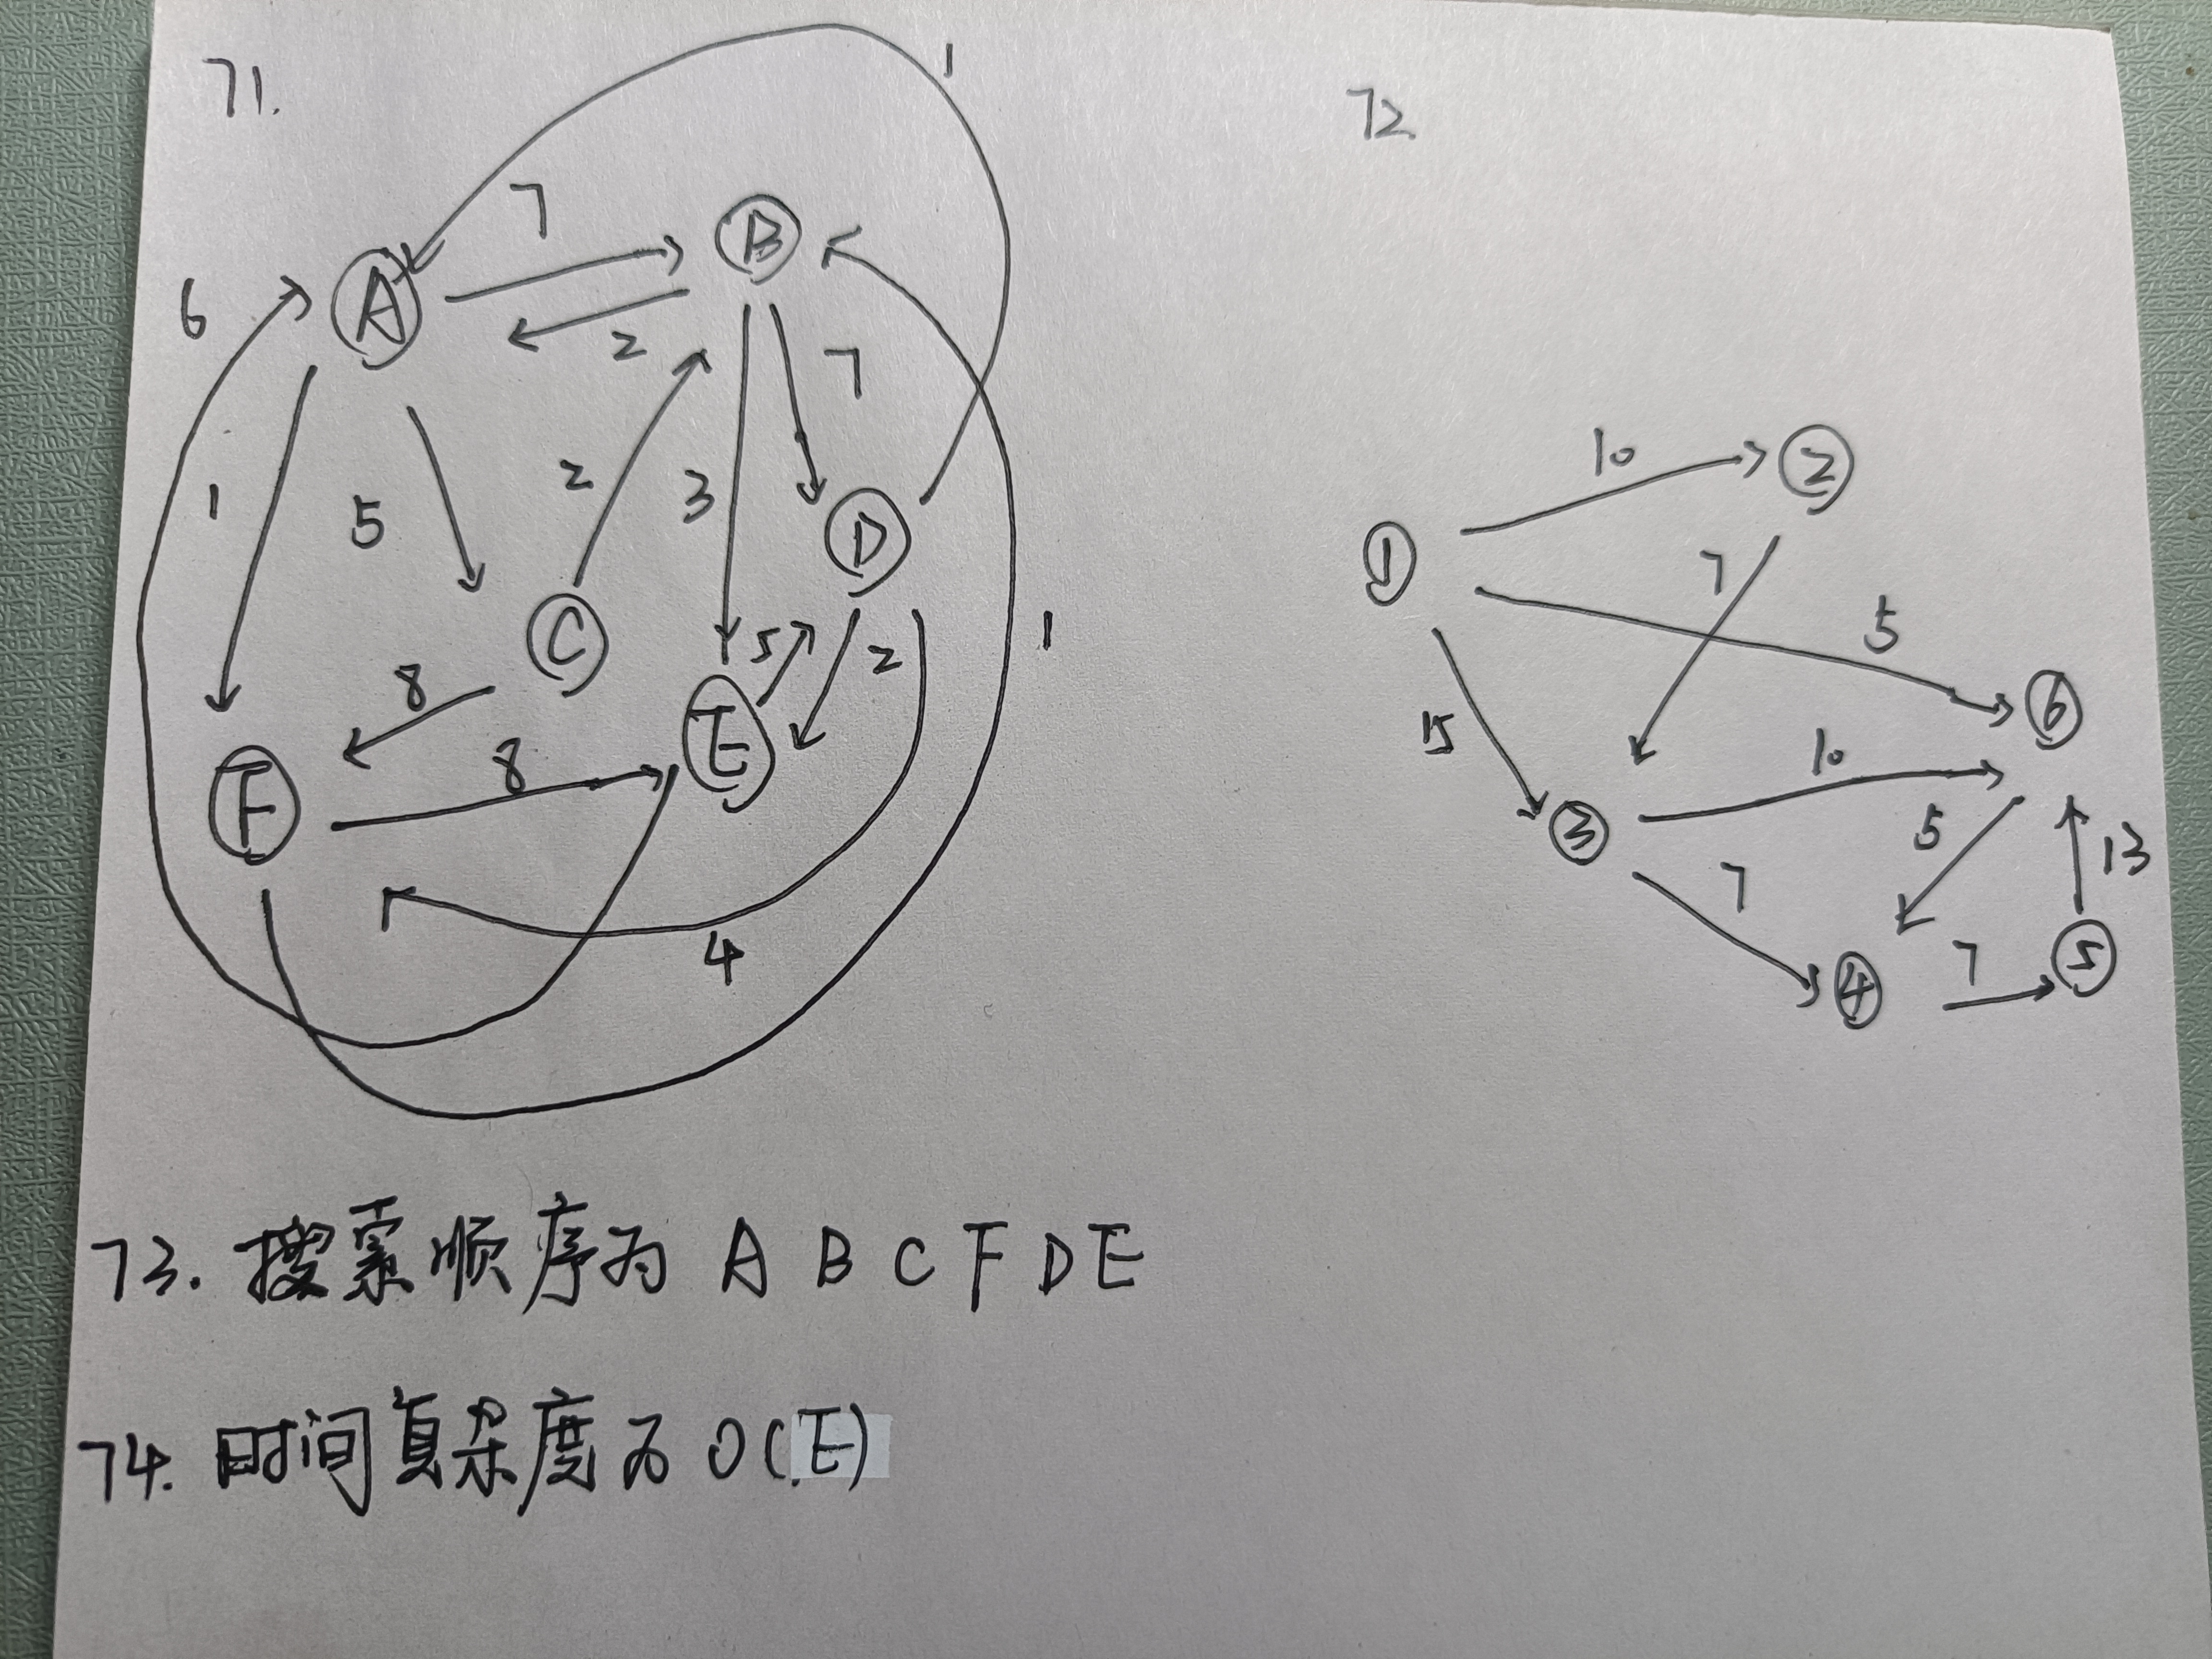 71.
1
7
A
B
6
2
7
1
5
2
3
D
C
5
2
1
8
E
8
F
4
72.
10
2
1
7
5
6
15
10
3
5
13
7
7
5
4
73. 搜索顺序为 A B C F D E
74. 时间复杂度为 O(E)